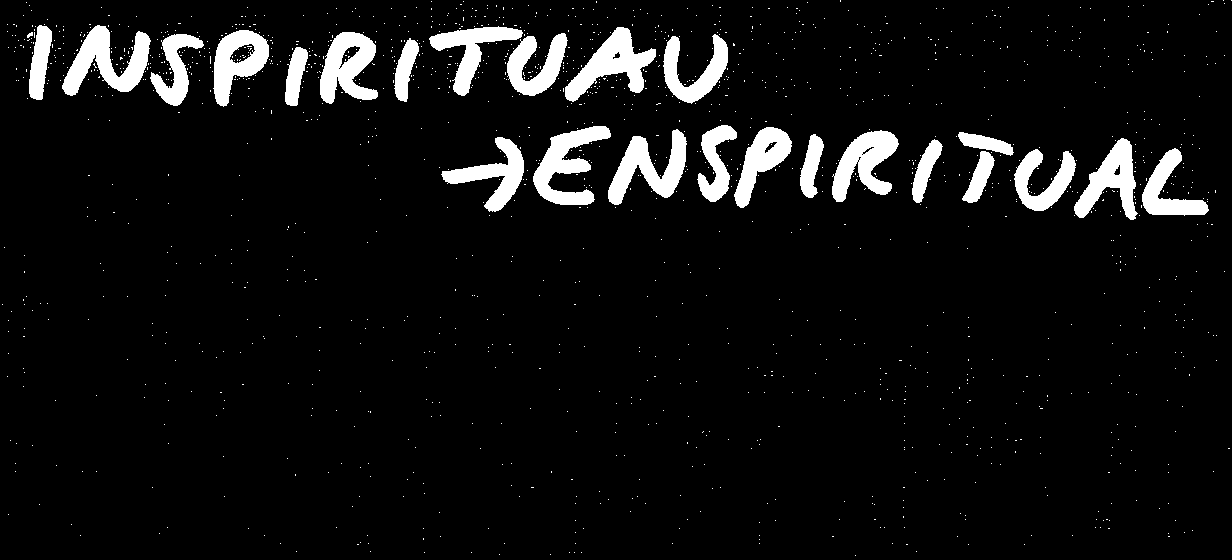 INSPIRITUAU
→ENSPIRITUAL